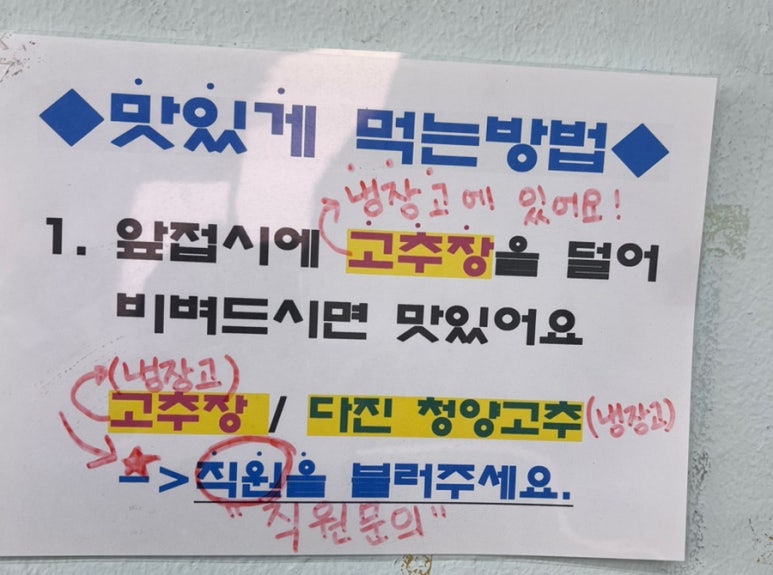 ◆맛있게 먹는방법◆
냉장고에 있어요!
1. 앞접시에 고추장을 덜어
비벼드시면 맛있어요
(냉장고)
고추장 / 다진 청양고추(냉장고)
★
->직원을 불러주세요.
"직원문의"